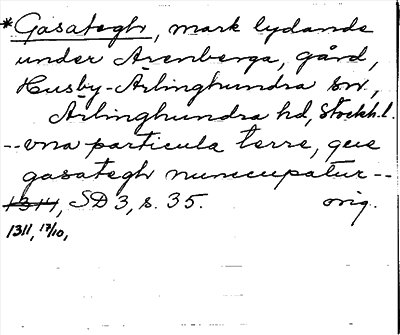 *Gasategh, mark lydande
under Arenberga, gård,
Husby-Ärlinghundra sn,
Ärlinghundra hd, Stockh.l.
--vna particula terre, que
gasategh nuncupatur--
1311, SD 3, s. 35. orig.
1311, 17/10,